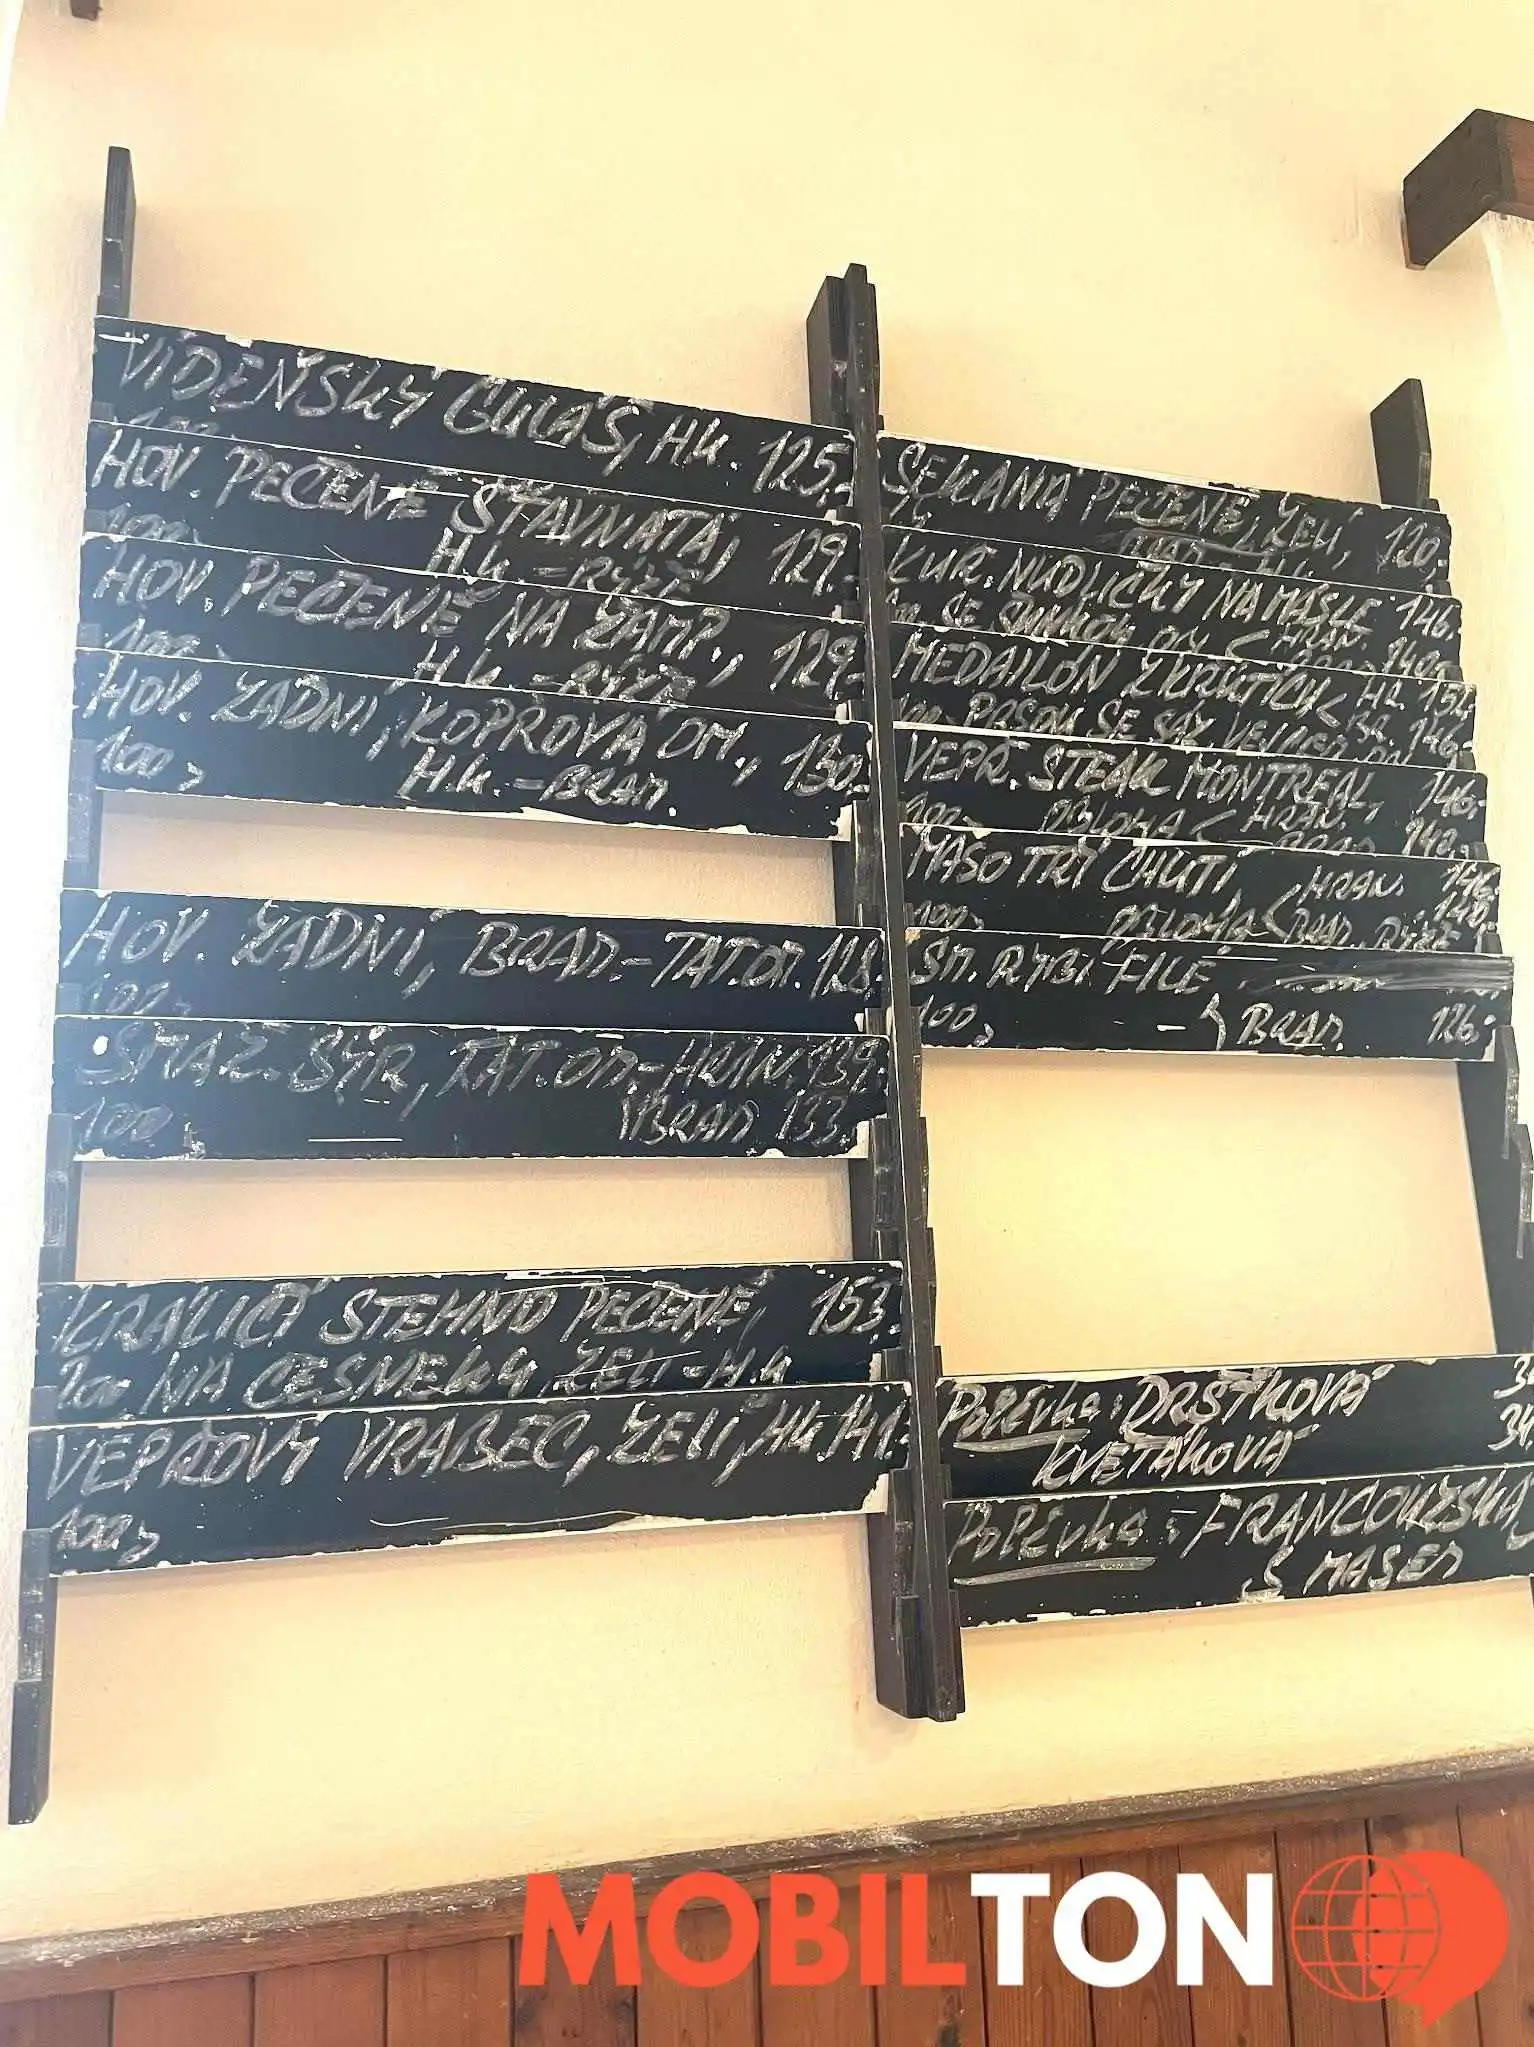 VÍDEŇSKÝ GULÁŠ, H.k. 125,-
HOV. PEČENĚ ŠŤAVNATÁ, 129,-
H.k. - RÝŽE
HOV. PEČENĚ NA ŽAMP., 129,-
H.k. - RÝŽE
HOV. ZADNÍ, KOPROVÁ OM., 130,-
100,- H.k. - BRAM.
HOV. ZADNÍ, BRAM. - TAT.OM. 128,-
100,-
SMAŽ. SÝR, TAT. OM. - HRAN. 139,-
100 BRAM 133,-
KRÁLIČÍ STEHNO PEČENÉ, 153,-
200 NA ČESNEKU, ZELÍ - H.k
VEPŘOVÝ VRABEC, ZELÍ, Hk 141,-
100,-
SEKANÁ PEČENĚ, ZELÍ, 120,-
KUŘ. NUDLIČKY NA MÁSLE 146,-
MEDAILON Z KRŮTÍCH < HR. 152,-
BR. 146,-
VEPŘ. STEAK MONTREAL, 146,-
100,- PŘÍLOHA < HRAN. 142,-
MASO TŘÍ CHUTÍ HRAN. 146,-
100,- PŘÍLOHA < BRAM. RÝŽE
SM. RYBÍ FILÉ
100,- - BRAM. 126,-
POLÉVKA: DRŠŤKOVÁ
KVĚTÁKOVÁ 34
POLÉVKA: FRANCOUZSKÁ
S MASEM
MOBILTON